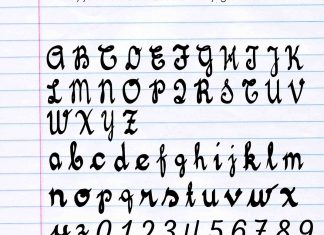 A B C D E F G H I J K
L M N O P Q R S T U V
W X Y Z
a b c d e f g h i j k l m
n o p q r s t u v w x
y z 0 1 2 3 4 5 6 7 8 9